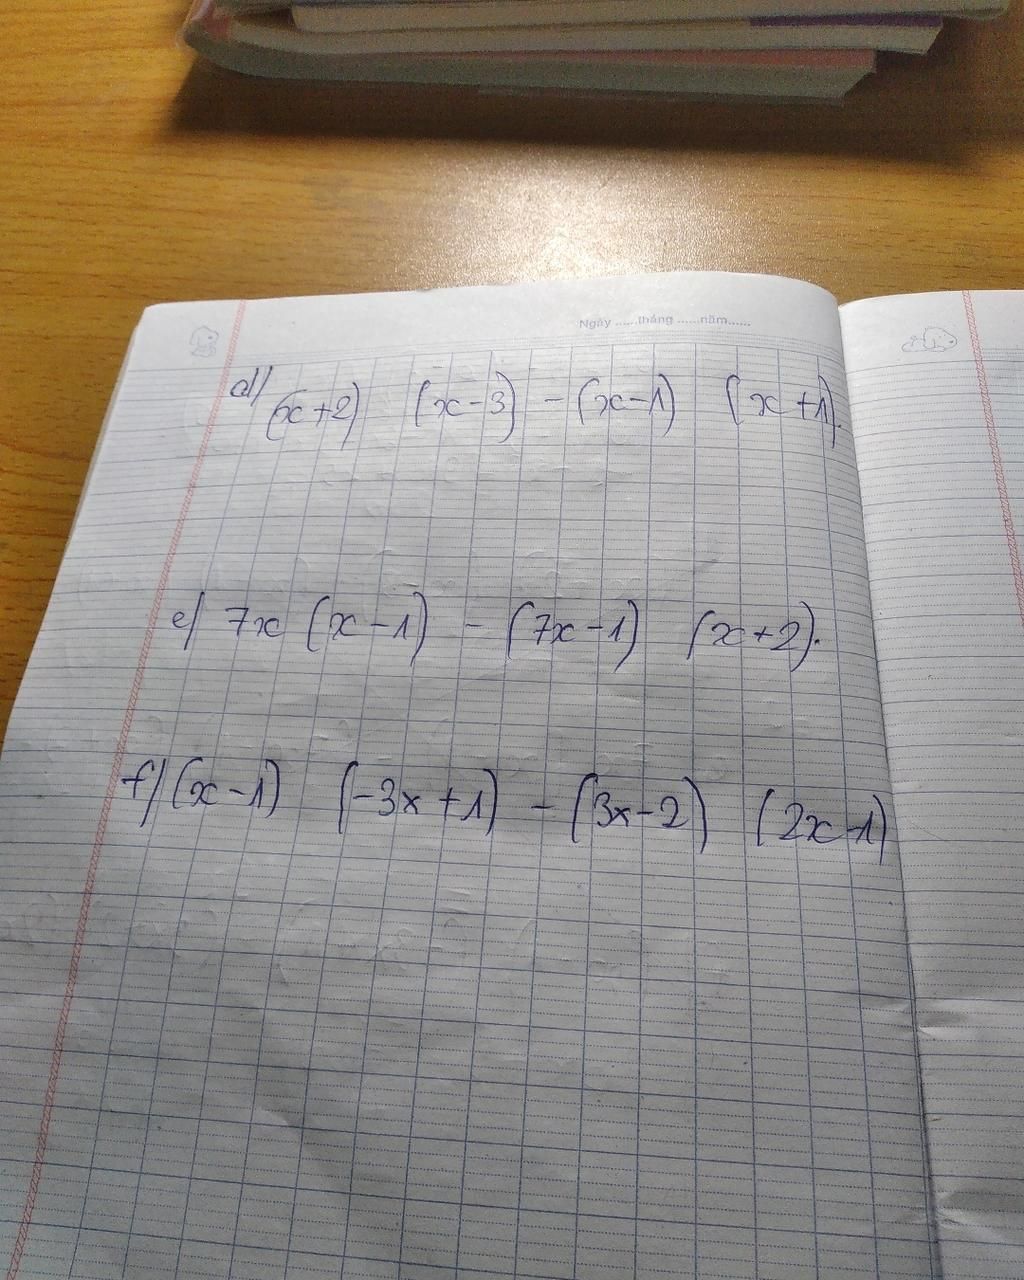 Ngày ......tháng ......năm......
d/ (x+2) (x-3) - (x-1) (x+1).
e/ 7x (x-1) - (7x-1) (x+2).
f/ (x-1) (-3x+1) - (3x-2) (2x-1)